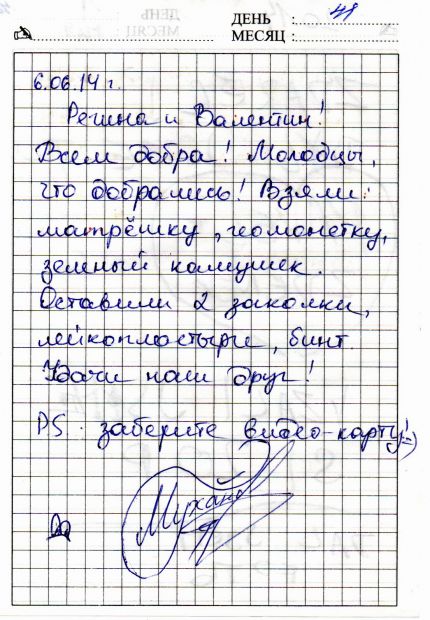 ДЕНЬ : 41
МЕСЯЦ :
6.06.14 г.
Регина и Валентин!
Всем добра! Молодцы,
что добрались! Взяли:
матрёшку, геомонетку,
зеленый камушек.
Оставили 2 заколки,
лейкопластыри, бинт.
Удачи наш друг!
PS. заберите видео-карту! :)